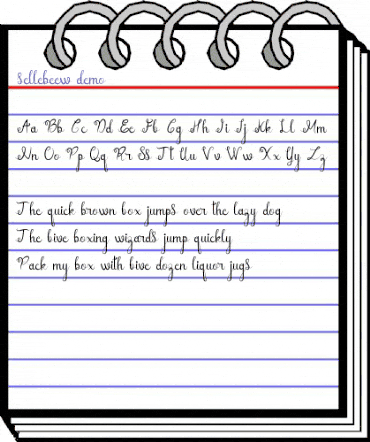 Sellebeew demo
Aa Bb Cc Dd Ee Ff Gg Hh Ii Jj Kk Ll Mm
Nn Oo Pp Qq Rr Ss Tt Uu Vv Ww Xx Yy Zz
The quick brown fox jumps over the lazy dog
The five boxing wizards jump quickly
Pack my box with five dozen liquor jugs